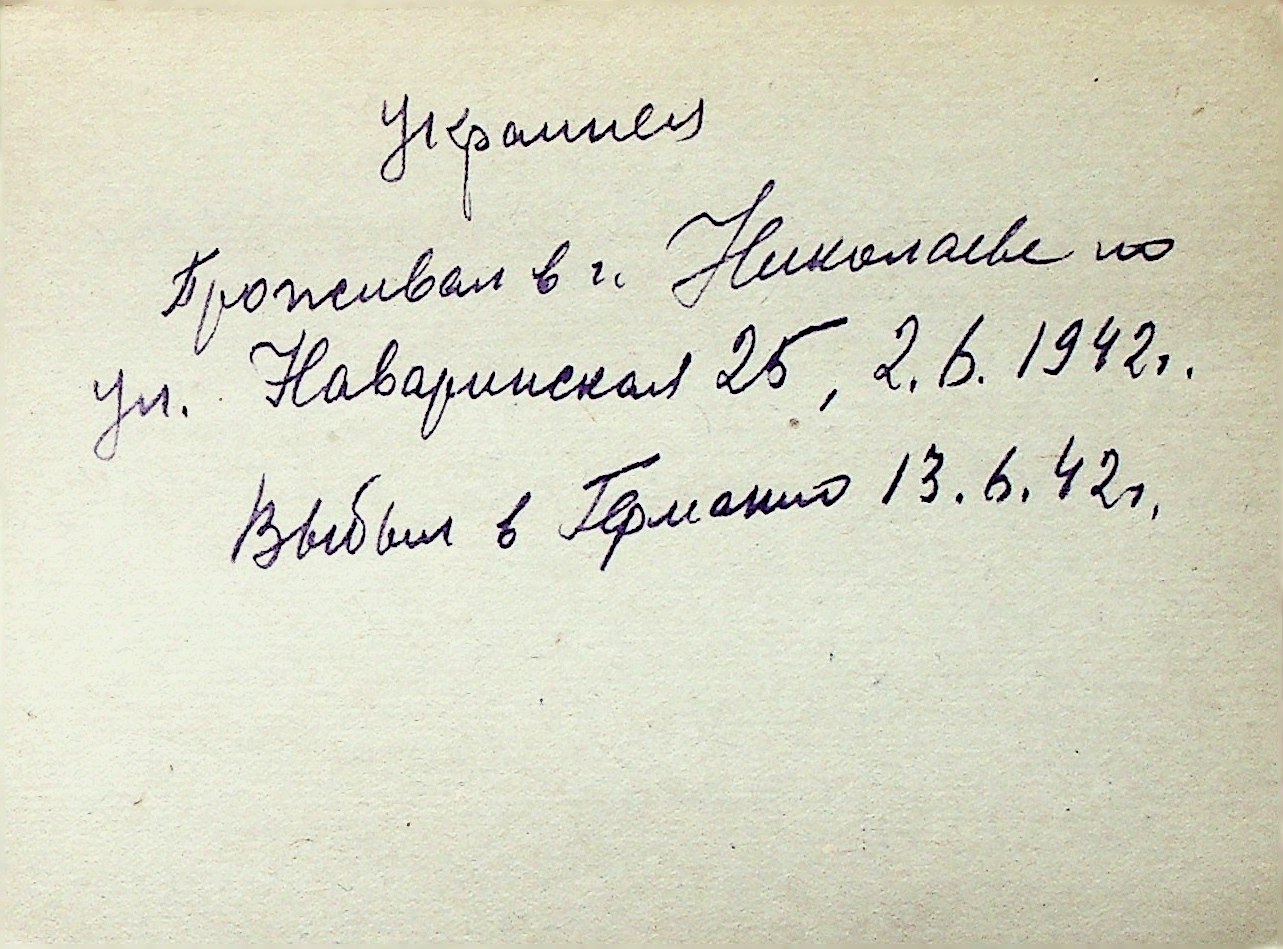 Украинец
Проживал в г. Николаеве по
ул. Наваринская 25, 2.6.1942г.
Выбыл в Германию 13.6.42г.